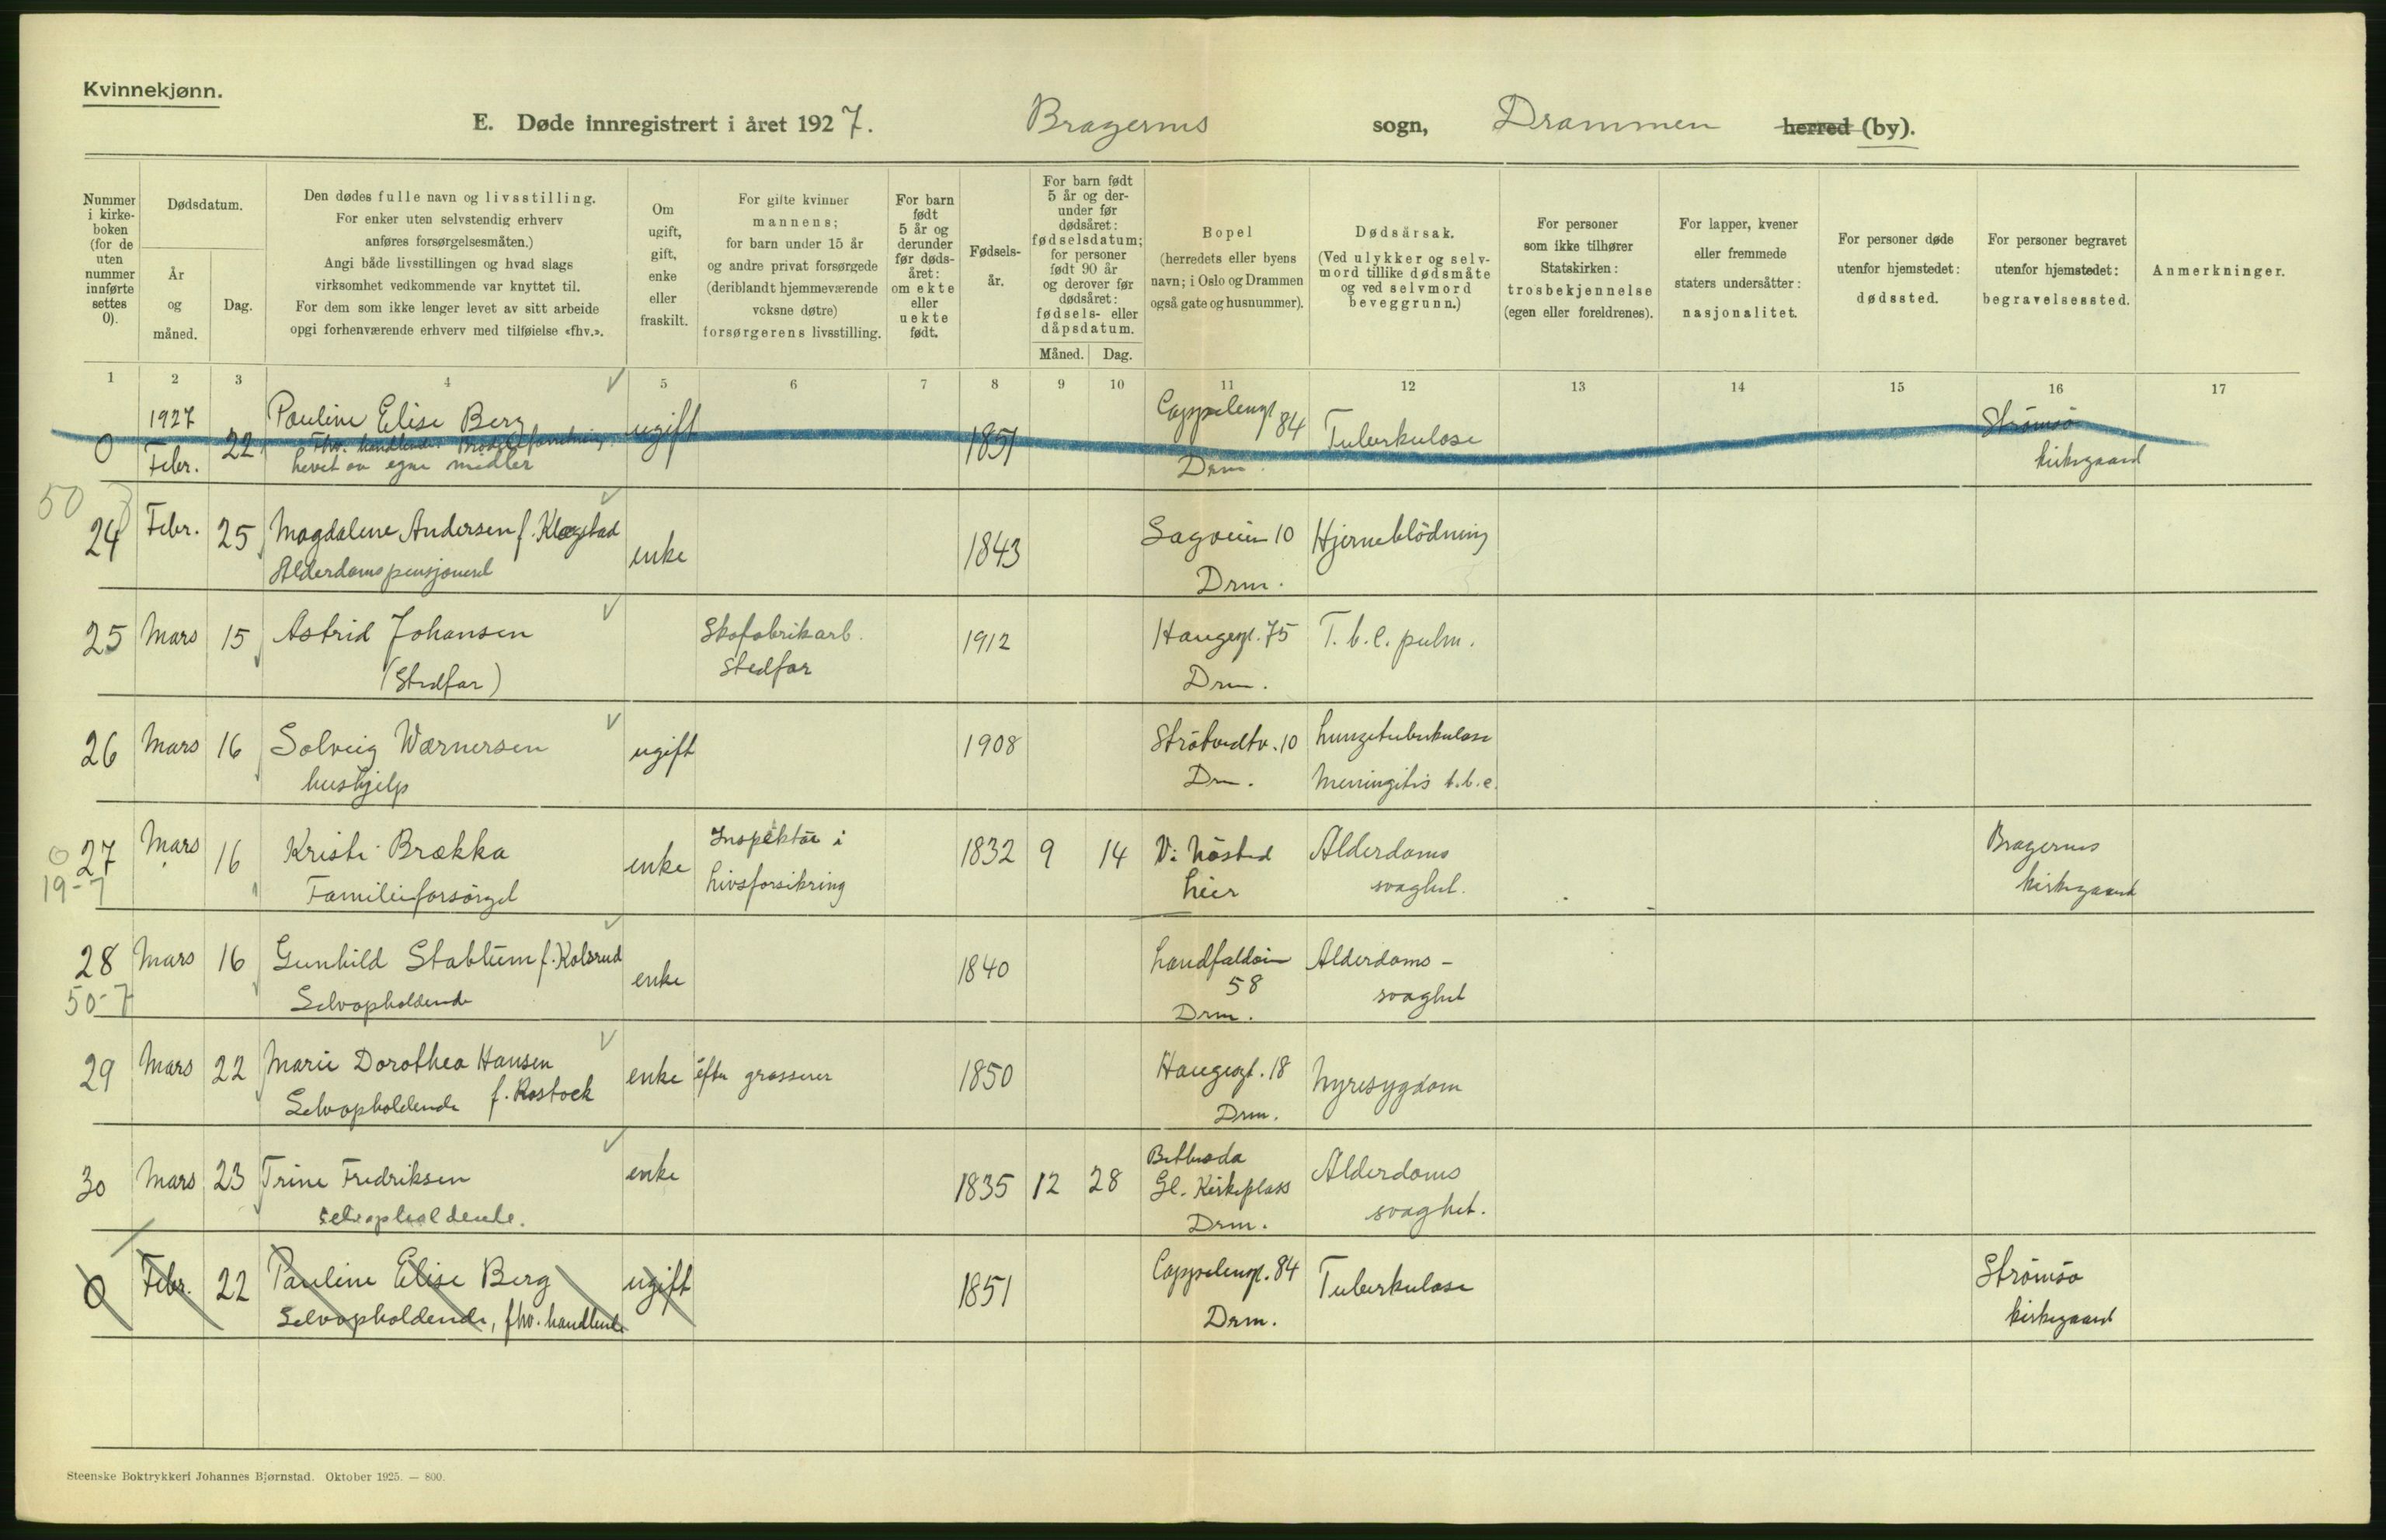 Kvinnekjønn.
E. Døde innregistrert i året 1927. Bragernes sogn, Drammen herred (by).
Nummer i kirkeboken (for de uten nummer innførte settes 0).
Dødsdatum.
År og måned.
Dag.
Den dødes fulle navn og livsstilling.
For enker uten selvstendig erhverv
anføres forsørgelsesmåten.)
Angi både livsstillingen og hvad slags
virksomhet vedkommende var knyttet til.
For dem som ikke lenger levet av sitt arbeide
opgi forhenværende erhverv med tilføielse «fhv.».
Om ugift, gift, enke eller fraskilt.
For gifte kvinner
mannens;
for barn under 15 år
og andre privat forsørgede
(deriblandt hjemmeværende
voksne døtre)
forsørgerens livsstilling.
For barn født 5 år og derunder før dødsåret: om ekte eller uekte født.
Fødselsår.
For barn født 5 år og derunder før dødsåret: fødselsdatum; for personer født 90 år og derover før dødsåret: fødsels- eller dåpsdatum.
Måned. Dag.
Bopel
(herredets eller byens
navn; i Oslo og Drammen
også gate og husnummer).
Dødsårsak.
(Ved ulykker og selvmord tillike dødsmåte og ved selvmord beveggrunn.)
For personer
som ikke tilhører
Statskirken:
trosbekjennelse
(egen eller foreldrenes).
For lapper, kvener
eller fremmede
staters undersåtter:
nasjonalitet.
For personer døde
utenfor hjemstedet:
dødssted.
For personer begravet
utenfor hjemstedet:
begravelsessted.
Anmerkninger.
1 2 3 4 5 6 7 8 9 10 11 12 13 14 15 16 17
0 1927 Febr. 22 Pauline Elise Berg ugift 1851 Cappelensgt 84 Drm. Tuberkulose Strømsø kirkegaard
Fhv. handlende
Levet av egne midler
50
24 Febr. 25 Magdalene Andersen f. Klægstad enke 1843 Sagveien 10 Drm. Hjerneblödning
Alderdomspensjonert
25 Mars 15 Astrid Johansen Skofabrikarb. Stedfar 1912 Haugesgt. 75 Drm. T.b.c. pulm.
(Stedfar)
26 Mars 16 Solveig Wærnersen ugift 1908 Strötvedtv. 10 Dm. Lungetuberkulose
hushjelp Meningitis t.b.c.
27 Mars 16 Kristi Brækka enke Inspektör i Livsforsikring 1832 9 14 Vi Nösted heier Alderdoms svaghet. Bragernes kirkegaard
0
19-7
Familieforsörget
28 Mars 16 Gunhild Stablum f. Kolsrud enke 1840 Landfaldöien 58 Drm. Alderdoms- svaghet
50-7
Selvopholdende
29 Mars 22 Marie Dorothea Hansen enke efter grosserer 1850 Haugesgt. 18 Drm. Nyresygdom
Selvopholdende f. Rostock
30 Mars 23 Trine Fredriksen enke 1835 12 28 Bethesda Gl. Kirkeplass Drm. Alderdoms svaghet.
selvopholdende.
0 Febr. 22 Pauline Elise Berg ugift 1851 Cappelensgt. 84 Drm. Tuberkulose Strömsö kirkegaard
Selvopholdende, fhv. handlende
Steenske Boktrykkeri Johannes Bjørnstad. Oktober 1925. — 800.